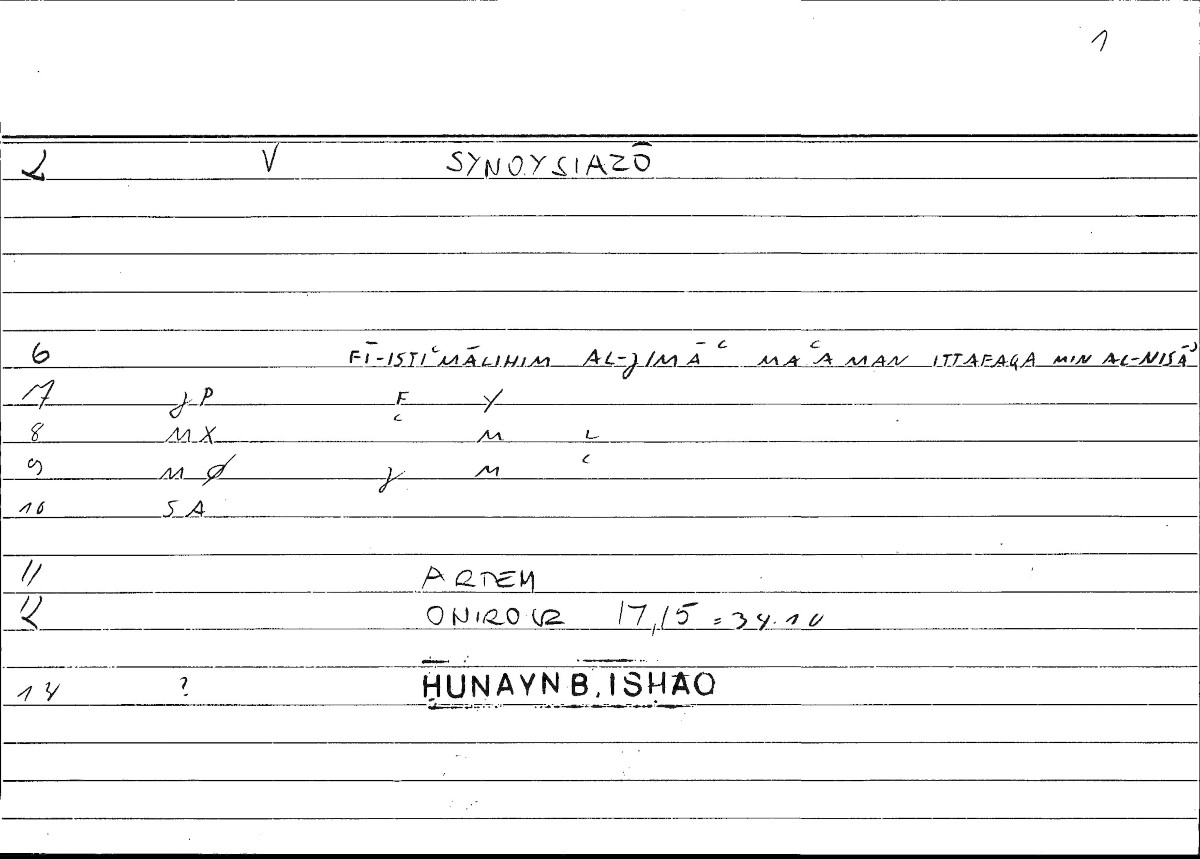 1
2 V SYNOYSIAZŌ
6 FĪ-ISTIʿMĀLIHIM AL-JIMĀʿ MAʿA MAN ITTAFAQA MIN AL-NISĀʾ
7 JP F Y
8 MX ʿ M L
9 MØ J M ʿ
10 SA
11 ARTEM
12 ONIROCR 17,15 = 34.10
14 ? ḤUNAYN B. ISḤĀQ